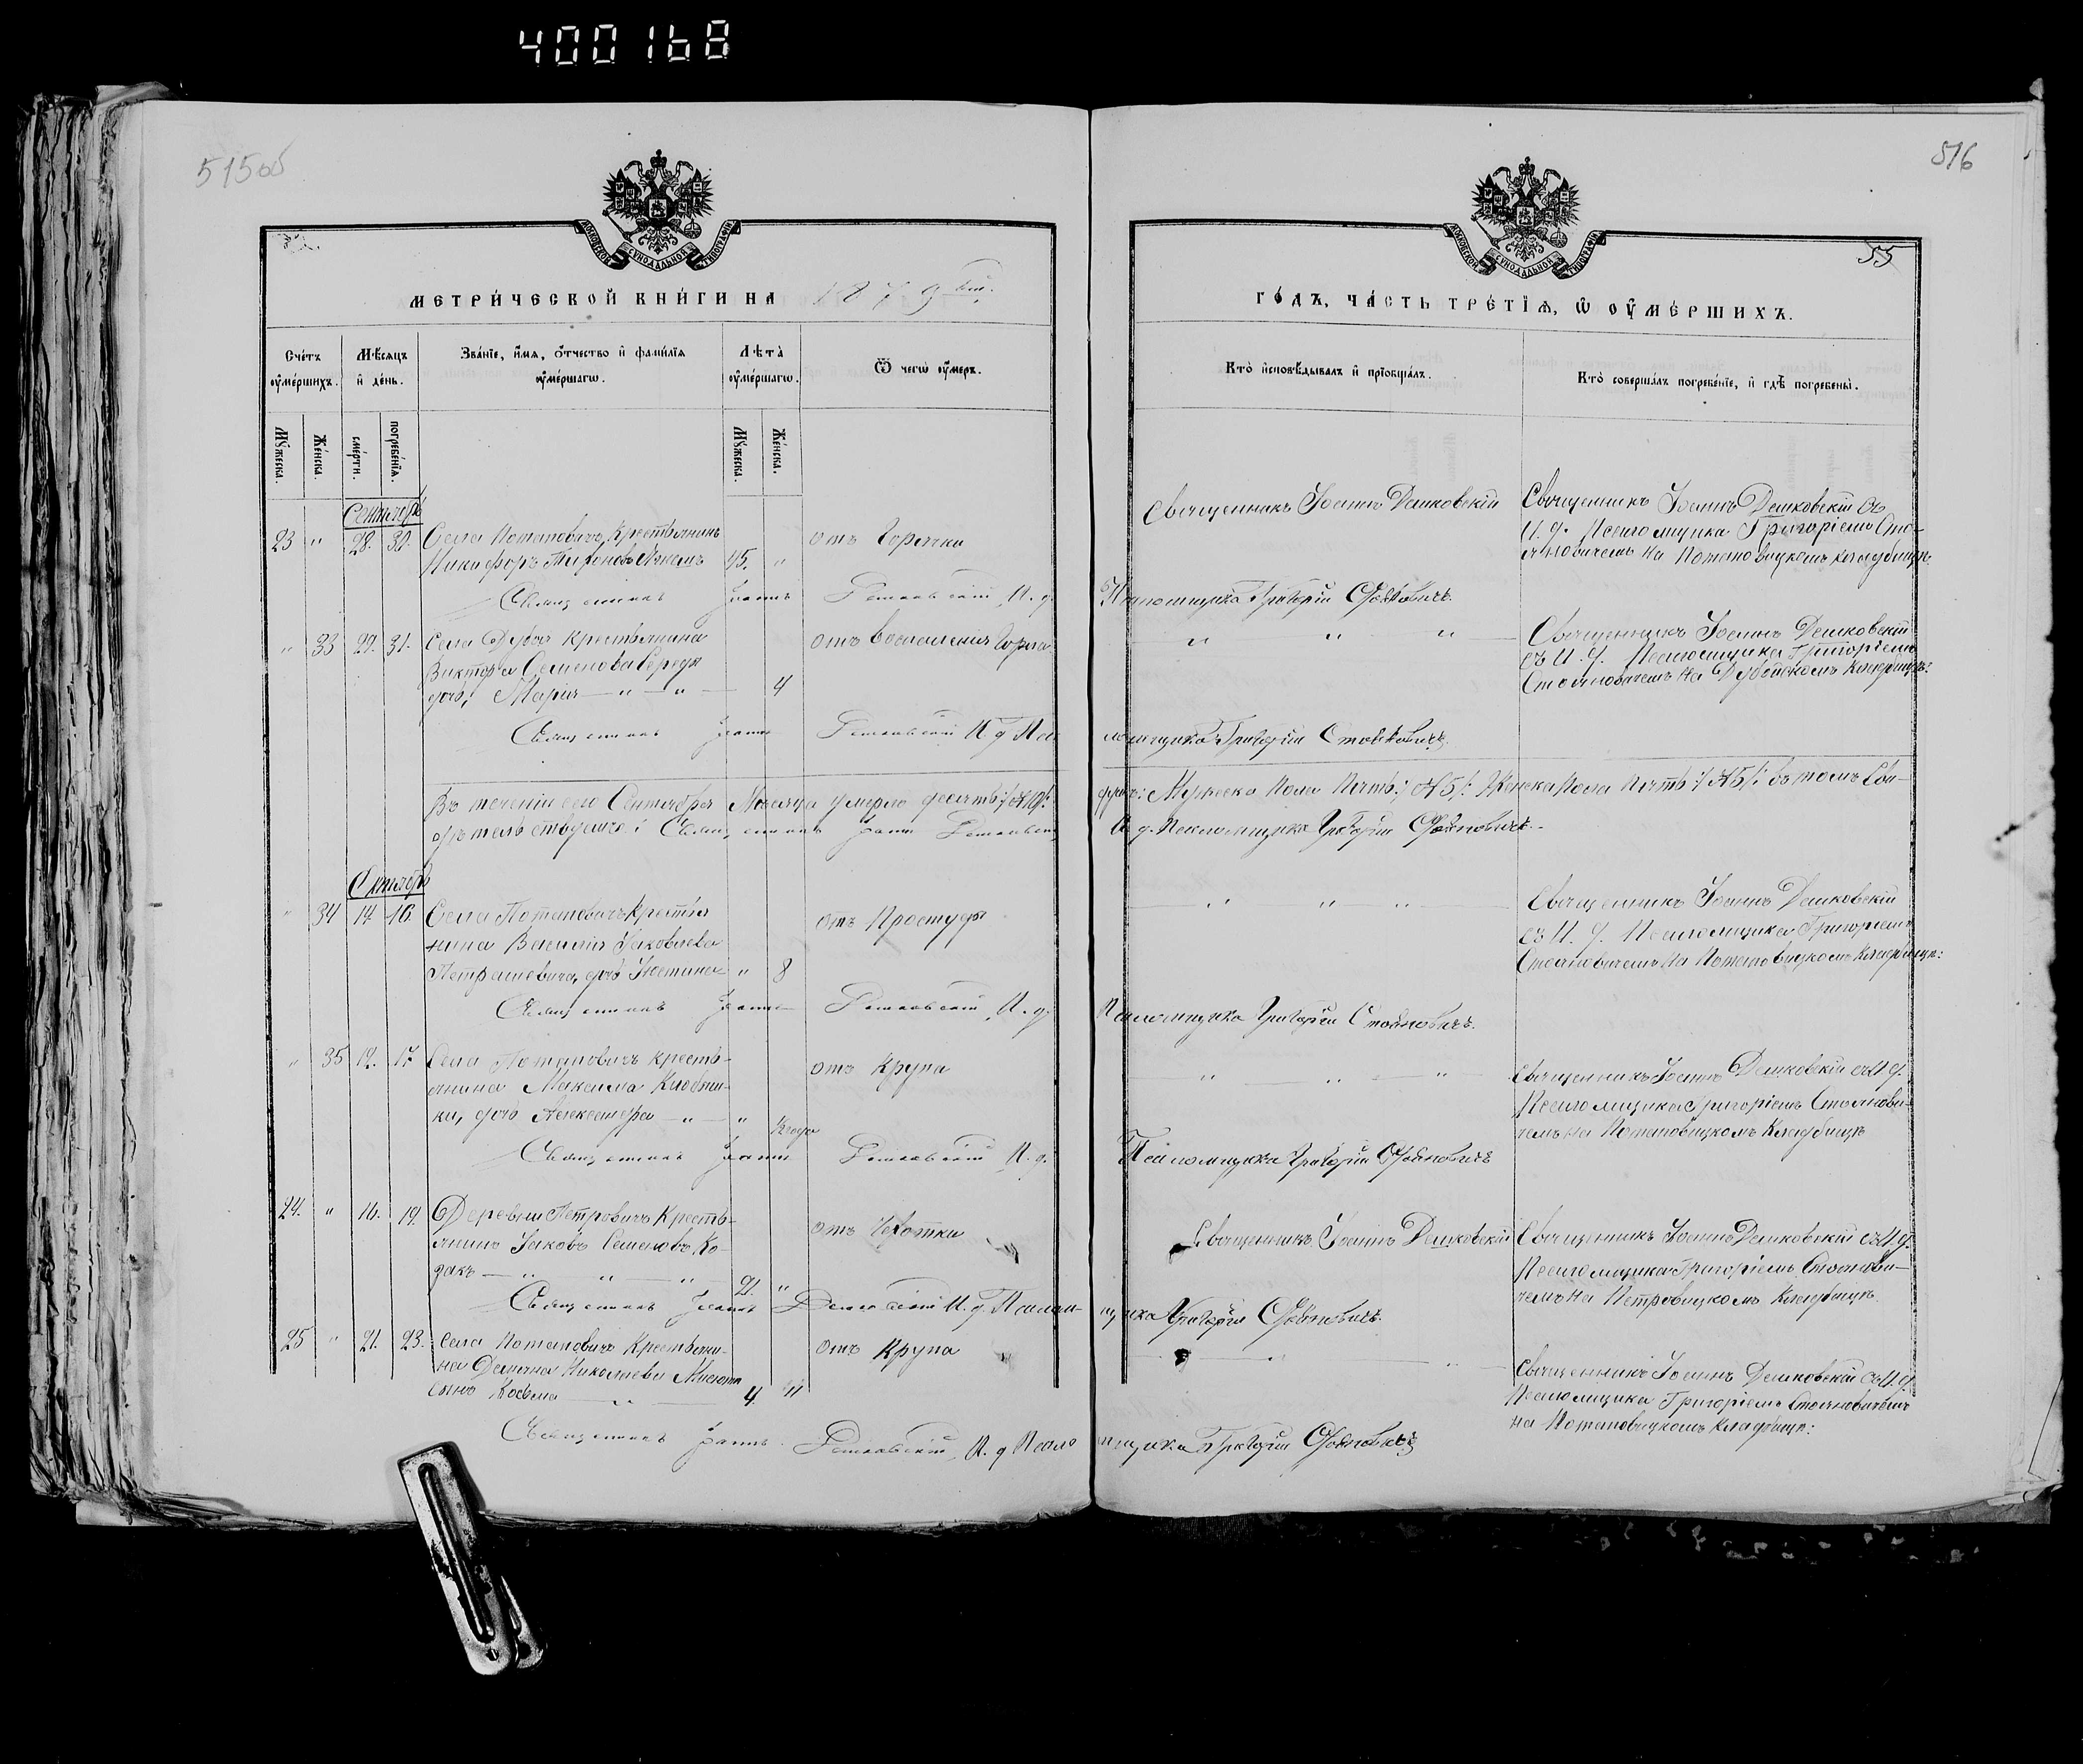 400168
515об
516
55
МОСКОВСКОЙ СѴНОДАЛЬНОЙ ТИПОГРАФІИ
МОСКОВСКОЙ СѴНОДАЛЬНОЙ ТИПОГРАФІИ
МЕТРИ́ЧЕСКОЙ КНИ́ГИ НА 1879
ГО́ДЪ, ЧА́СТЬ ТРЕ́ТІЯ, Ѡ ОУ҆МЕ́РШИХЪ.
Сче́тъ оу҆ме́ршихъ.
Мѣ́сяцъ и҆ де́нь.
Зва́нїе, и҆́мя, о҆́тчество и҆ фамѝлїя оу҆ме́ршагѡ.
Лѣ́та̀ оу҆ме́ршагѡ.
Ѿ чегѡ̀ оу҆́меръ.
Кто̀ и҆сповѣ́дывалъ и҆ прїобща́лъ.
Кто̀ соверша́лъ погребе́нїе, и҆ гдѣ̀ погребены̀.
Мꙋ́жеска.
Же́нска.
сме́рти.
погребе́нїя.
Мꙋ́жеска.
Же́нска.
Сентябрь
23 " 28. 30. Села Потаповичъ, Крестьянинъ
Никифоръ 45. "
отъ Горячки
Священникъ Іоаннъ Демковскій
Священникъ Іоаннъ Демковскій съ
И. д. Псаломщика Григоріемъ Сто-
яновичемъ на Потаповицкомъ кладбищѣ.
Священникъ Іоаннъ Демковскій И. д. Псаломщика Григорій Стояновичъ.
" 33 29. 31. Села Дубая крестьянина
Виктора Семенова Середы
дочь, Марія — " — " — 4
отъ воспаленія горла
" " "
Священникъ Іоаннъ Демковскій
съ И. д. Псаломщика Григоріемъ
Стояновичемъ на Дубойскомъ кладбищѣ:
Священникъ Іоаннъ Демковскій И д Псаломщика Григорій Стояновичъ.
Въ теченіи сего Сентября Мѣсяца умерло десять :/№10/: душъ: Мужеска Пола Пять :/№5/: Женска Пола Пять :/№5/: въ томъ Сви-
дѣтельствуемъ: Священникъ Іоаннъ Демковскій И. д. Псаломщика Григорій Стояновичъ.
Октябрь
" 34 14. 16. Села Потаповичъ крестья
нина Василія Яковлева
Петрашевича, дочь Іюстина " 8
отъ Простуды
" " "
Священникъ Іоаннъ Демковскій
съ И. д. Псаломщика Григоріемъ
Стояновичемъ на Потаповицкомъ кладбищѣ:
Священникъ Іоаннъ Демковскій И. д. Псаломщика Григорій Стояновичъ.
" 35 14. 17 Села Потаповичъ кресть-
янина Максима
ки, дочь Александра — " — "
отъ Крупа
" " "
Священникъ Іоаннъ Демковскій съ И д.
Псаломщика Григоріемъ Стоянови-
чемъ на Потаповицкомъ Кладбищѣ
Священникъ Іоаннъ Демковскій И. д. Псаломщика Григорій Стояновичъ
24. " 16. 19. Деревни Петровичъ Кресть-
янинъ Іаковъ Семеновъ Ко-
закъ — " — " 21. "
отъ Чахотки
Священникъ Іоаннъ Демковскій
Священникъ Іоаннъ Демковскій съ И д.
Псаломщика Григоріемъ Стоянови-
чемъ на Петровицкомъ Кладбищѣ
Священникъ Іоаннъ Демковскій И. д. Псаломщика Григорій Стояновичъ.
25 " 21. 23. Села Потаповичъ Крестьяни-
на Даміана Николаева
сынъ Косьма — " — 4 "
отъ Крупа
Священникъ Іоаннъ Демковскій съ И. д.
Псаломщика Григоріемъ Стояновичемъ
на Потаповицкомъ Кладбищѣ:
Священникъ Іоаннъ Демковскій, И. д Псаломщика Григорій Стояновичъ